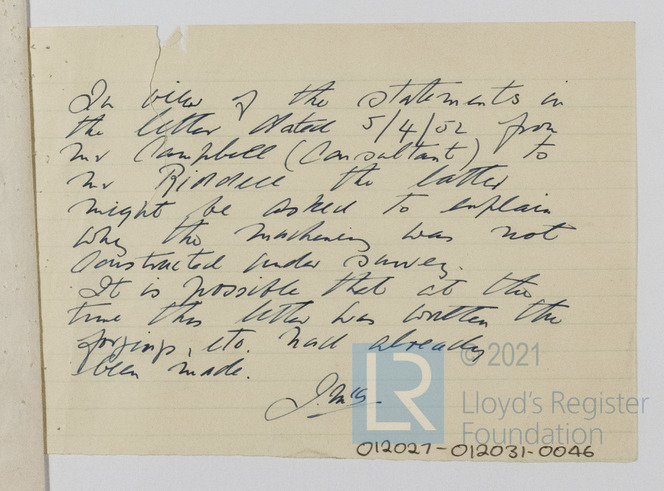 In view of the statements in
the letter dated 5/4/52 from
Mr Campbell (Consultant) to
Mr Riddell the latter
might be asked to explain
why the machinery was not
constructed under survey.
It is possible that at the
time this letter was written the
forgings, etc. had already
been made.
J. McG
LR
© 2021
Lloyd's Register
Foundation
012027-012031-0046